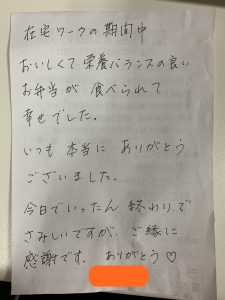 在宅ワークの期間中
おいしくて栄養バランスの良い
お弁当が 食べられて
幸せでした。
いつも 本当に ありがとう
ございました。
今日でいったん 終わりで
さみしいですが、ご縁に
感謝です。 ありがとう♡